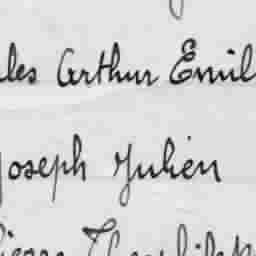 les Arthur Emil
Joseph Julien